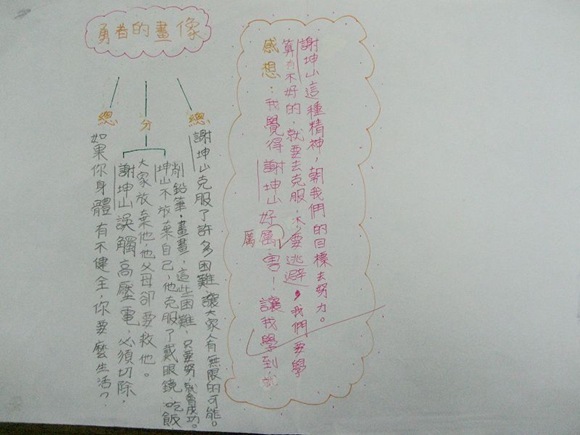 勇者的畫像
總
如果你身體有不健全,你要麼生活?
分
謝坤山誤觸高壓電,必須切除,
大家放棄他,他父母卻要救他。
坤山不放棄自己,他克服了戴眼鏡、吃飯
削鉛筆、畫畫,這些困難,只要努力就會成功。
總
謝坤山克服了許多困難,讓大家有無限的可能。
感想:我覺得謝坤山好厲害!讓我學到就
厲
算有不好的,就要去克服,不要逃避,我們要學
謝坤山這種精神,朝我們的目標去努力。